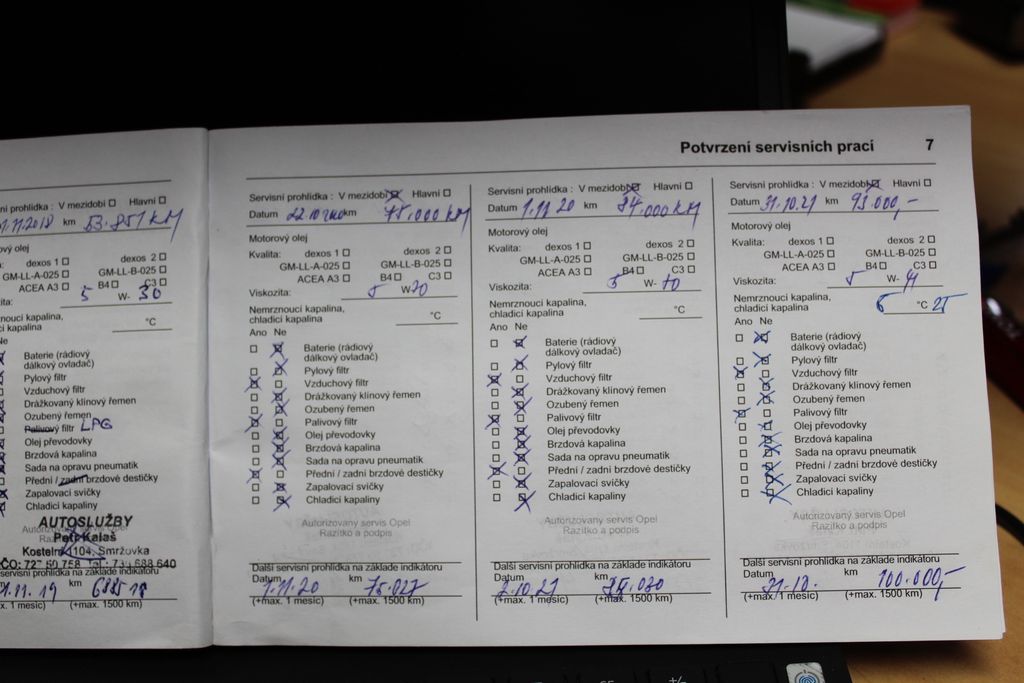 Potvrzení servisních prací 7
Servisní prohlídka : V mezidobí ☐
km 53.851 KM
ový olej
dexos 1 ☐ dexos 2 ☐
GM-LL-A-025 ☐ GM-LL-B-025 ☐
ACEA A3 ☐ B4 ☐ C3 ☐
5 W- 30
kapalina,
cí kapalina °C
Ne
Baterie (rádiový
dálkový ovladač)
Pylový filtr
Vzduchový filtr
Drážkovaný klínový řemen
Ozubený řemen
Palivový filtr LPG
Olej převodovky
Brzdová kapalina
Sada na opravu pneumatik
Přední / zadní brzdové destičky
Zapalovací svíčky
Chladicí kapaliny
AUTOSLUŽBY
Petr Kalaš
Kostelní 104, Smržovka
servisní prohlídka na základě indikátoru
1.11.19
x. 1 měsíc) (+max. 1500 km)
Servisní prohlídka : V mezidobí ☒ Hlavní ☐
Datum km 75.000 KM
Motorový olej
Kvalita: dexos 1 ☐ dexos 2 ☐
GM-LL-A-025 ☐ GM-LL-B-025 ☐
ACEA A3 ☐ B4 ☐ C3 ☐
Viskozita: 5 W-
Nemrznoucí kapalina,
chladicí kapalina °C
Ano Ne
☐ ☒ Baterie (rádiový
dálkový ovladač)
☐ ☒ Pylový filtr
☒ ☐ Vzduchový filtr
☐ ☒ Drážkovaný klínový řemen
☐ ☒ Ozubený řemen
☒ ☐ Palivový filtr
☐ ☒ Olej převodovky
☐ ☒ Brzdová kapalina
☐ ☒ Sada na opravu pneumatik
☒ ☐ Přední / zadní brzdové destičky
☐ ☒ Zapalovací svíčky
☐ ☒ Chladicí kapaliny
Autorizovaný servis Opel
Razítko a podpis
Další servisní prohlídka na základě indikátoru
Datum km
1.11.20 75.027
(+max. 1 měsíc) (+max. 1500 km)
Servisní prohlídka : V mezidobí ☒ Hlavní ☐
Datum 1.11 20 km 84.000 KM
Motorový olej
Kvalita: dexos 1 ☐ dexos 2 ☐
GM-LL-A-025 ☐ GM-LL-B-025 ☐
ACEA A3 ☐ B4 ☐ C3 ☐
Viskozita: 5 W- 40
Nemrznoucí kapalina,
chladicí kapalina °C
Ano Ne
☐ ☒ Baterie (rádiový
dálkový ovladač)
☐ ☒ Pylový filtr
☒ ☐ Vzduchový filtr
☐ ☒ Drážkovaný klínový řemen
☐ ☒ Ozubený řemen
☒ ☐ Palivový filtr
☐ ☒ Olej převodovky
☐ ☒ Brzdová kapalina
☐ ☒ Sada na opravu pneumatik
☒ ☐ Přední / zadní brzdové destičky
☐ ☒ Zapalovací svíčky
☐ ☒ Chladicí kapaliny
Autorizovaný servis Opel
Razítko a podpis
Další servisní prohlídka na základě indikátoru
Datum km
10.21
(+max. 1 měsíc) (+max. 1500 km)
Servisní prohlídka : V mezidobí ☒ Hlavní ☐
Datum 31.10.21 km 93.000,-
Motorový olej
Kvalita: dexos 1 ☐ dexos 2 ☐
GM-LL-A-025 ☐ GM-LL-B-025 ☐
ACEA A3 ☐ B4 ☐ C3 ☐
Viskozita: 5 W-
Nemrznoucí kapalina,
chladicí kapalina °C 25
Ano Ne
☐ ☒ Baterie (rádiový
dálkový ovladač)
☐ ☒ Pylový filtr
☒ ☐ Vzduchový filtr
☐ ☒ Drážkovaný klínový řemen
☐ ☒ Ozubený řemen
☒ ☐ Palivový filtr
☐ ☒ Olej převodovky
☐ ☒ Brzdová kapalina
☐ ☒ Sada na opravu pneumatik
☐ ☒ Přední / zadní brzdové destičky
☐ ☒ Zapalovací svíčky
☐ ☒ Chladicí kapaliny
Autorizovaný servis Opel
Razítko a podpis
Další servisní prohlídka na základě indikátoru
Datum km
31.10. 100.000,-
(+max. 1 měsíc) (+max. 1500 km)